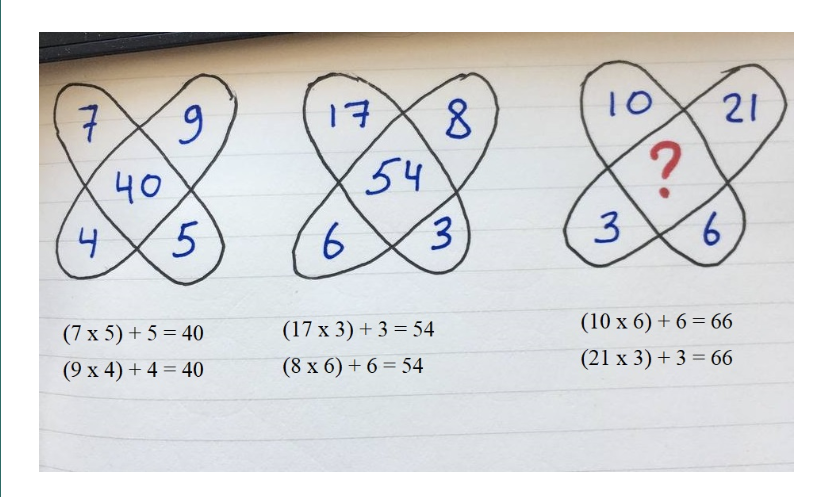 7 9 17 8 10 21
40 54 ?
4 5 6 3 3 6
(7 x 5) + 5 = 40 (17 x 3) + 3 = 54 (10 x 6) + 6 = 66
(9 x 4) + 4 = 40 (8 x 6) + 6 = 54 (21 x 3) + 3 = 66